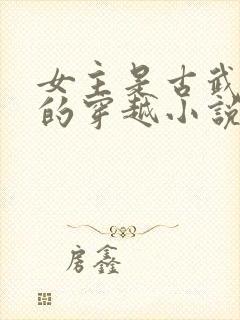 女主是古武
的穿越小説
房鑫